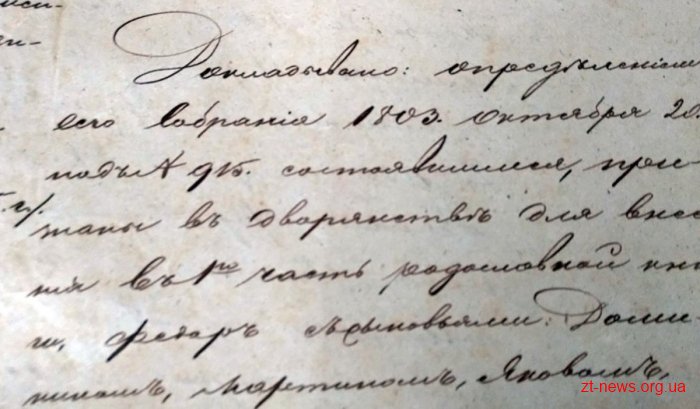 Докладывано: опредѣленіем
его собранія 1803. октября 20.
подъ № 95. состоявшимся, приз
таны въ дворянствѣ для внес
нія въ 1ю часть родословной кни
ги, Федоръ съ сыновьями: Доми
никомъ, Мартиномъ, Яковомъ,
zt-news.org.ua